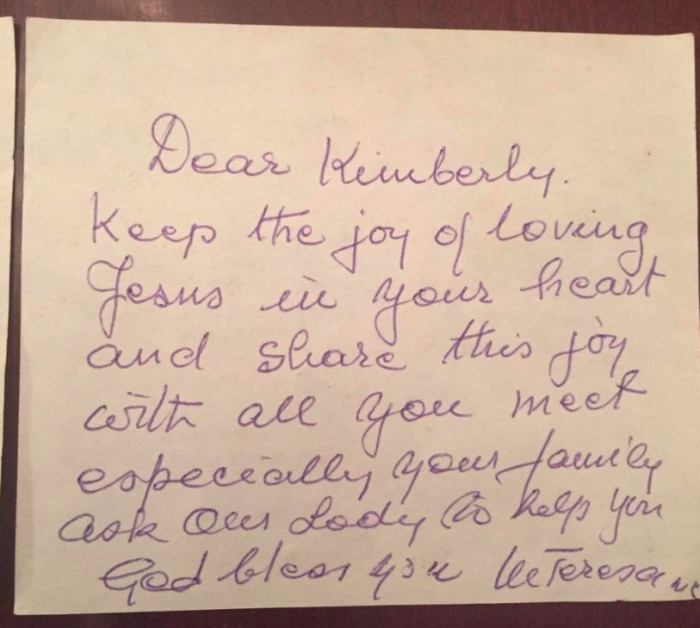 Dear Kimberly.
Keep the joy of loving
Jesus in your heart
and share this joy
with all you meet
especially your family
ask Our Lady to help you
God bless you M Teresa mc